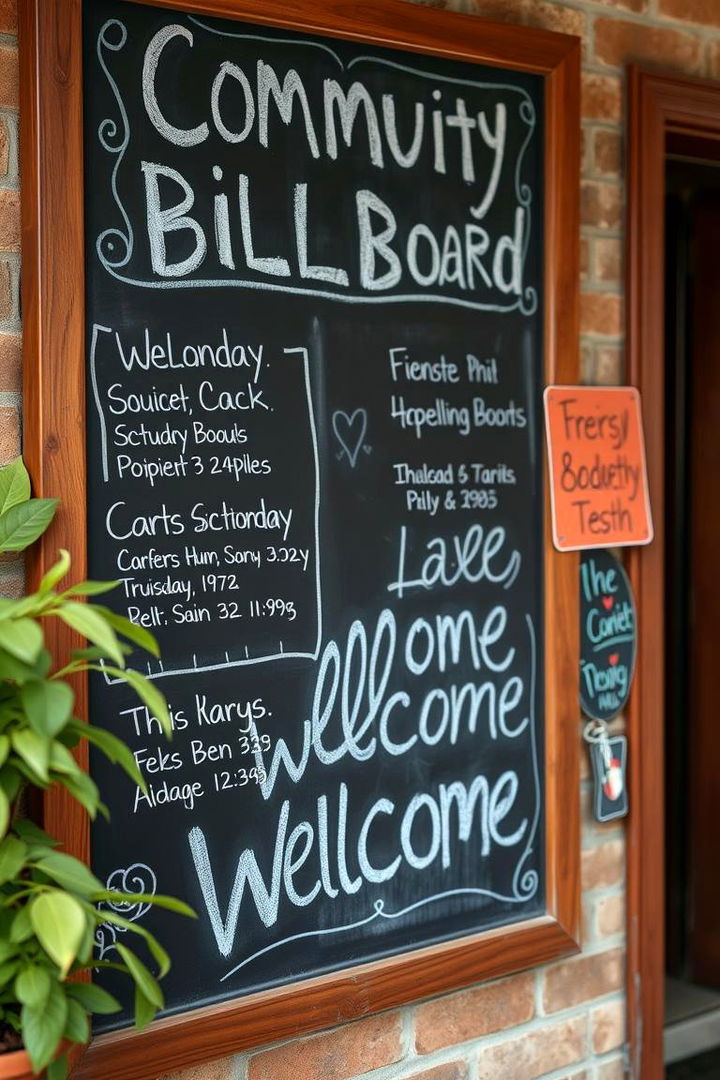 Commuity
BiLL Board
WeLonday.
Souicet, Cack.
Sctudry Boouls
Poipiert 3 24plles
Carts Sictionday
Carfers Hum, Sony 3.32y
Truisday, 1972
Belt: Sain 32 11:993
This Karys.
Feks Ben 339
Aidage 12:349
Fienste Phil
Hcpelling Boorts
Ihalsad & Tarits,
Pilly & 2985
Laxee,
Wellome
come
Wellcome
Freirsy
8oduetty
Testh
The
Coriet